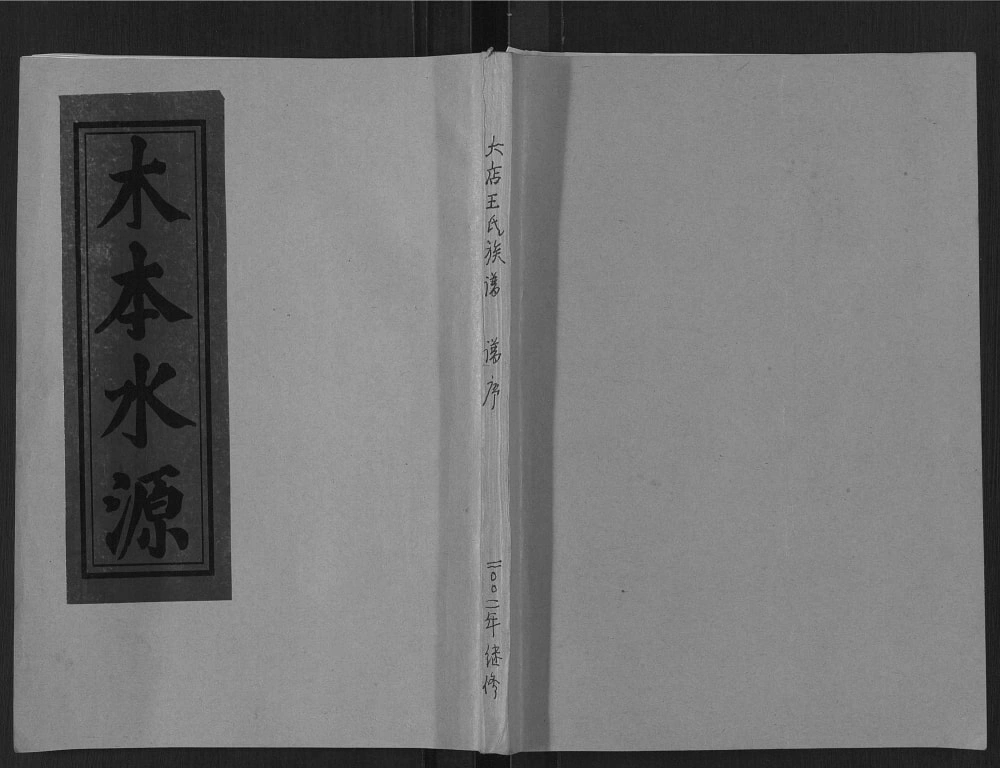 木本水源
大店王氏族谱 谱序 二〇〇二年继修